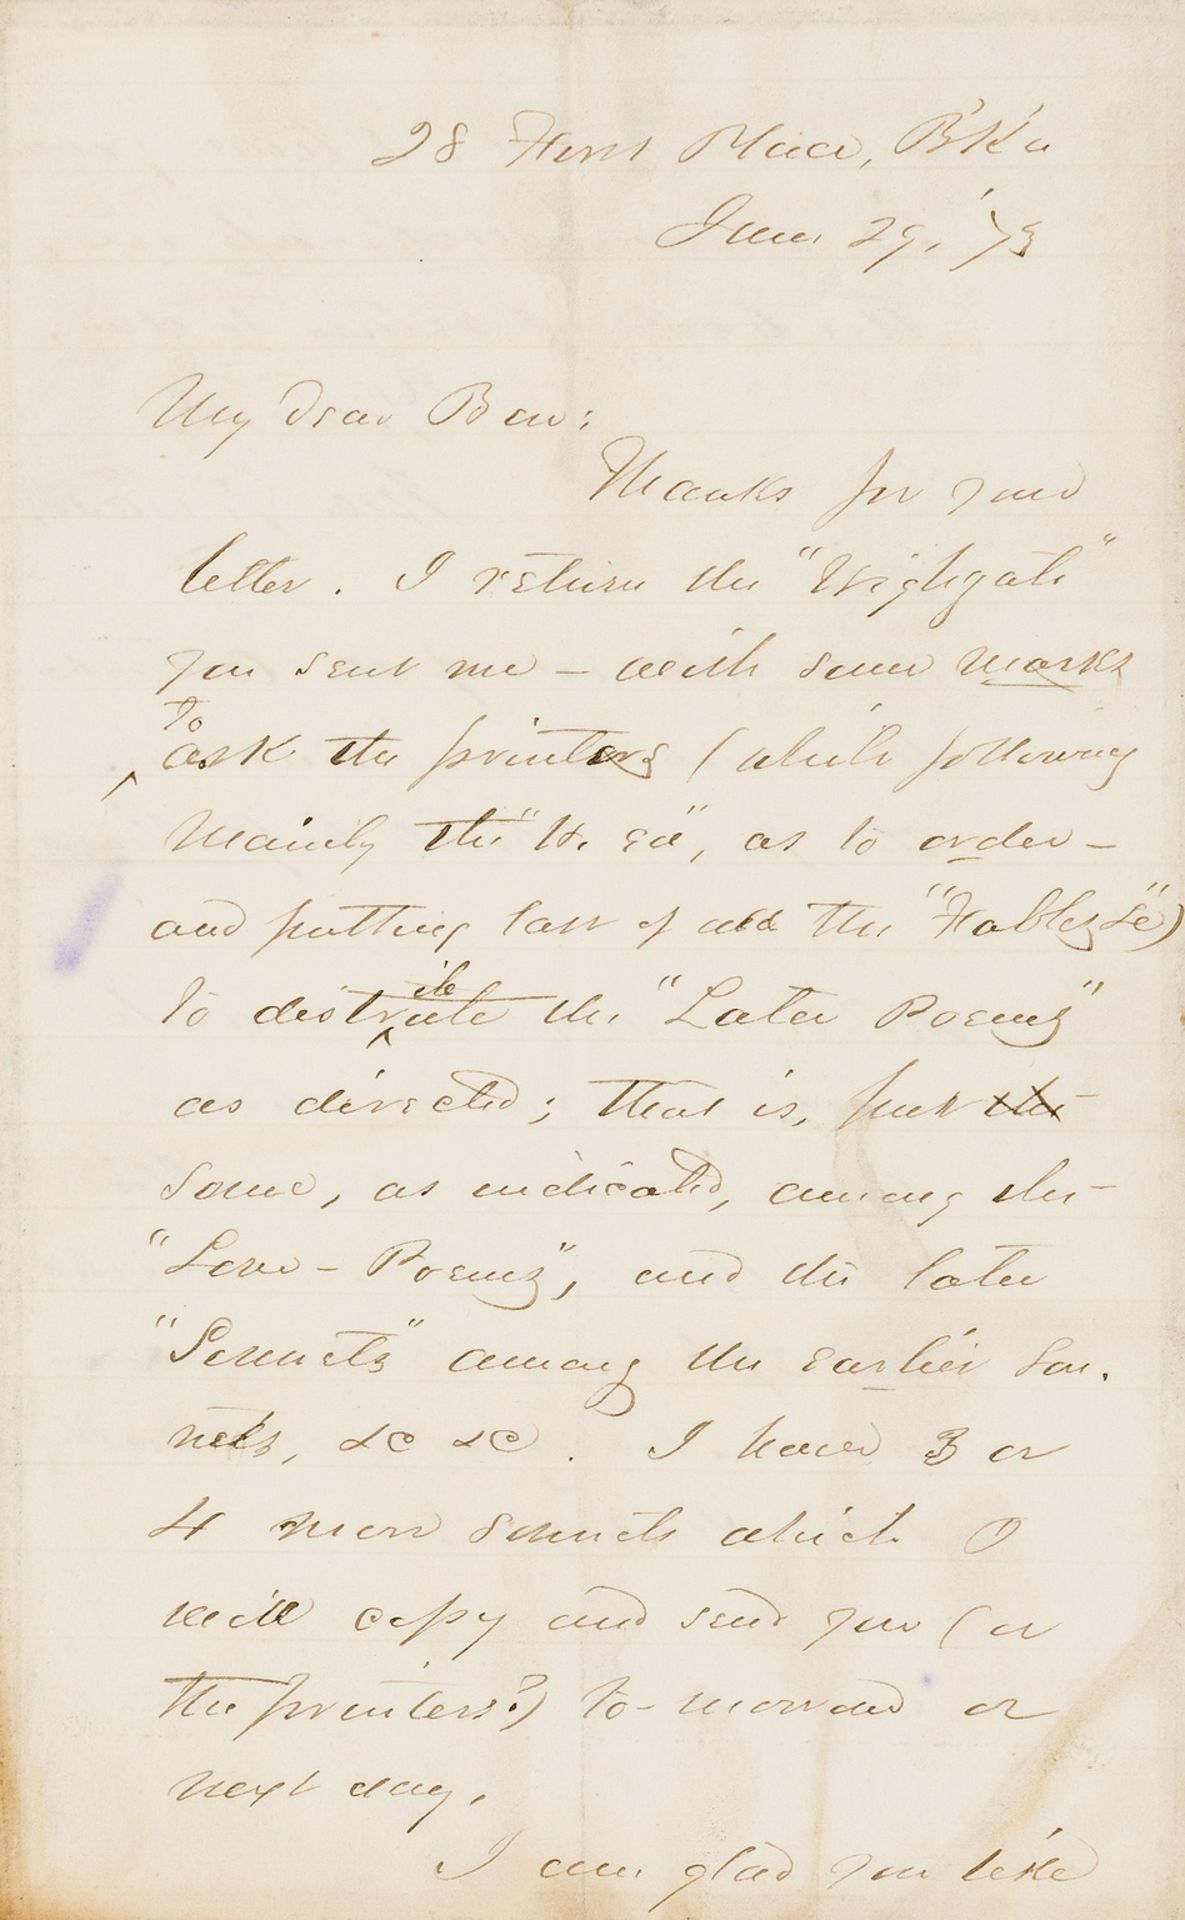 28 First Place, B'k'n
June 29, '73
My dear Ben:
Thanks for your
letter. I return the "Highgate"
you sent me – with some marks
to ask the printers (while following
mainly the "H. Ed", as to order –
and putting last of all the "Fables &c")
to distribute the "Later Poems"
as directed; that is, put the
some, as indicated, among the
"Love-Poems", and the later
"Sonnets" among the earlier Son-
nets, &c &c. I have 3 or
4 more sonnets which I
will copy and send you (or
the printers?) to-morrow or
next day.
I am glad you like